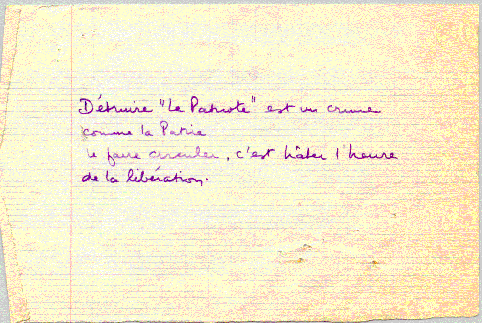 Détruire "Le Patriote" est un crime
comme la Patrie
Le faire circuler, c'est hâter l'heure
de la libération.